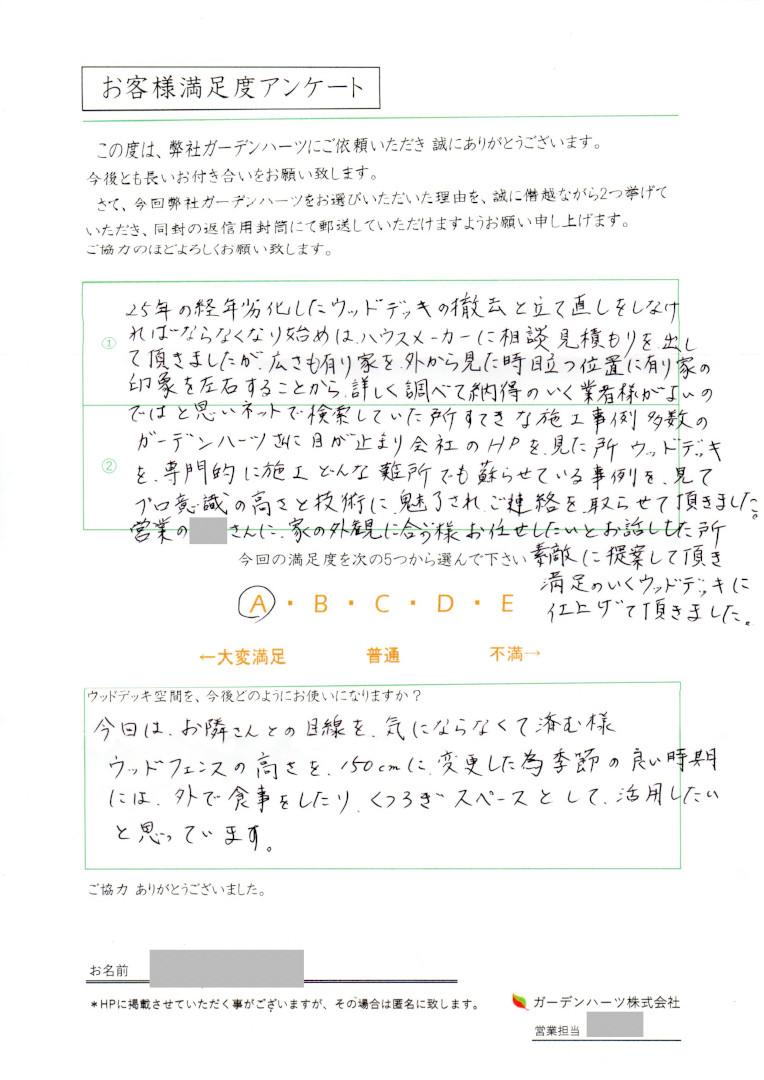 お客様満足度アンケート
この度は、弊社ガーデンハーツにご依頼いただき 誠にありがとうございます。
今後とも長いお付き合いをお願い致します。
さて、今回弊社ガーデンハーツをお選びいただいた理由を、誠に僭越ながら2つ挙げて
いただき、同封の返信用封筒にて郵送していただけますようお願い申し上げます。
ご協力のほどよろしくお願い致します。
①
25年の経年劣化したウッドデッキの撤去と立て直しをしなけ
ればならなくなり始めは、ハウスメーカーに相談 見積もりを出し
て頂きましたが、広さも有り家を、外から見た時目立つ位置に有り家の
印象を左右することから、詳しく調べて納得のいく業者様がよいの
ではと思いネットで検索していた所すてきな施工事例 多数の
②
ガーデンハーツさんに目が止まり会社のHPを、見た所 ウッドデッキ
を、専門的に施工 どんな難所でも蘇らせている事例を、見て
プロ意識の高さと技術に、魅了され、ご連絡を、取らせて頂きました。
営業の さんに、家の外観に合う様 お任せしたいとお話しした所
素敵に提案して頂き
満足のいくウッドデッキに
仕上げて頂きました。
今回の満足度を次の5つから選んで下さい
A・B・C・D・E
←大変満足 普通 不満→
ウッドデッキ空間を、今後どのようにお使いになりますか？
今回は、お隣さんとの目線を、気にならなくて済む様
ウッドフェンスの高さを、150cmに、変更した為季節の良い時期
には、外で食事をしたり、くつろぎスペースとして、活用したい
と思っています。
ご協力 ありがとうございました。
お名前
＊HPに掲載させていただく事がございますが、その場合は匿名に致します。
ガーデンハーツ株式会社
営業担当